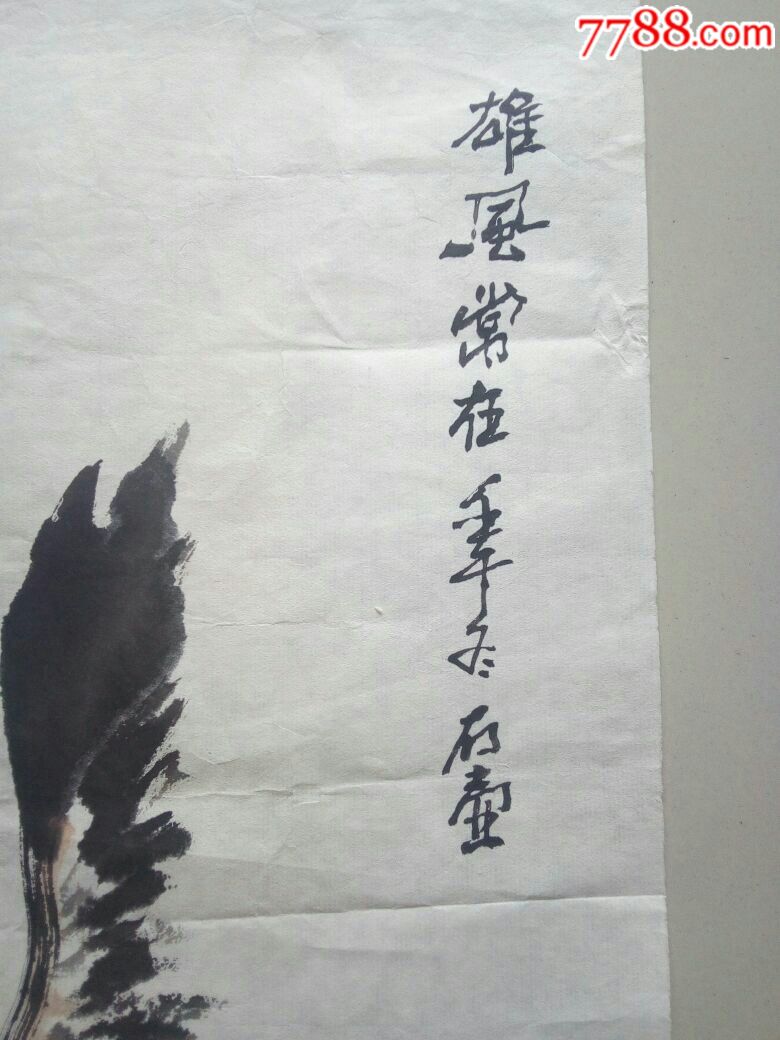 7788.com
雄风常在年冬石壶